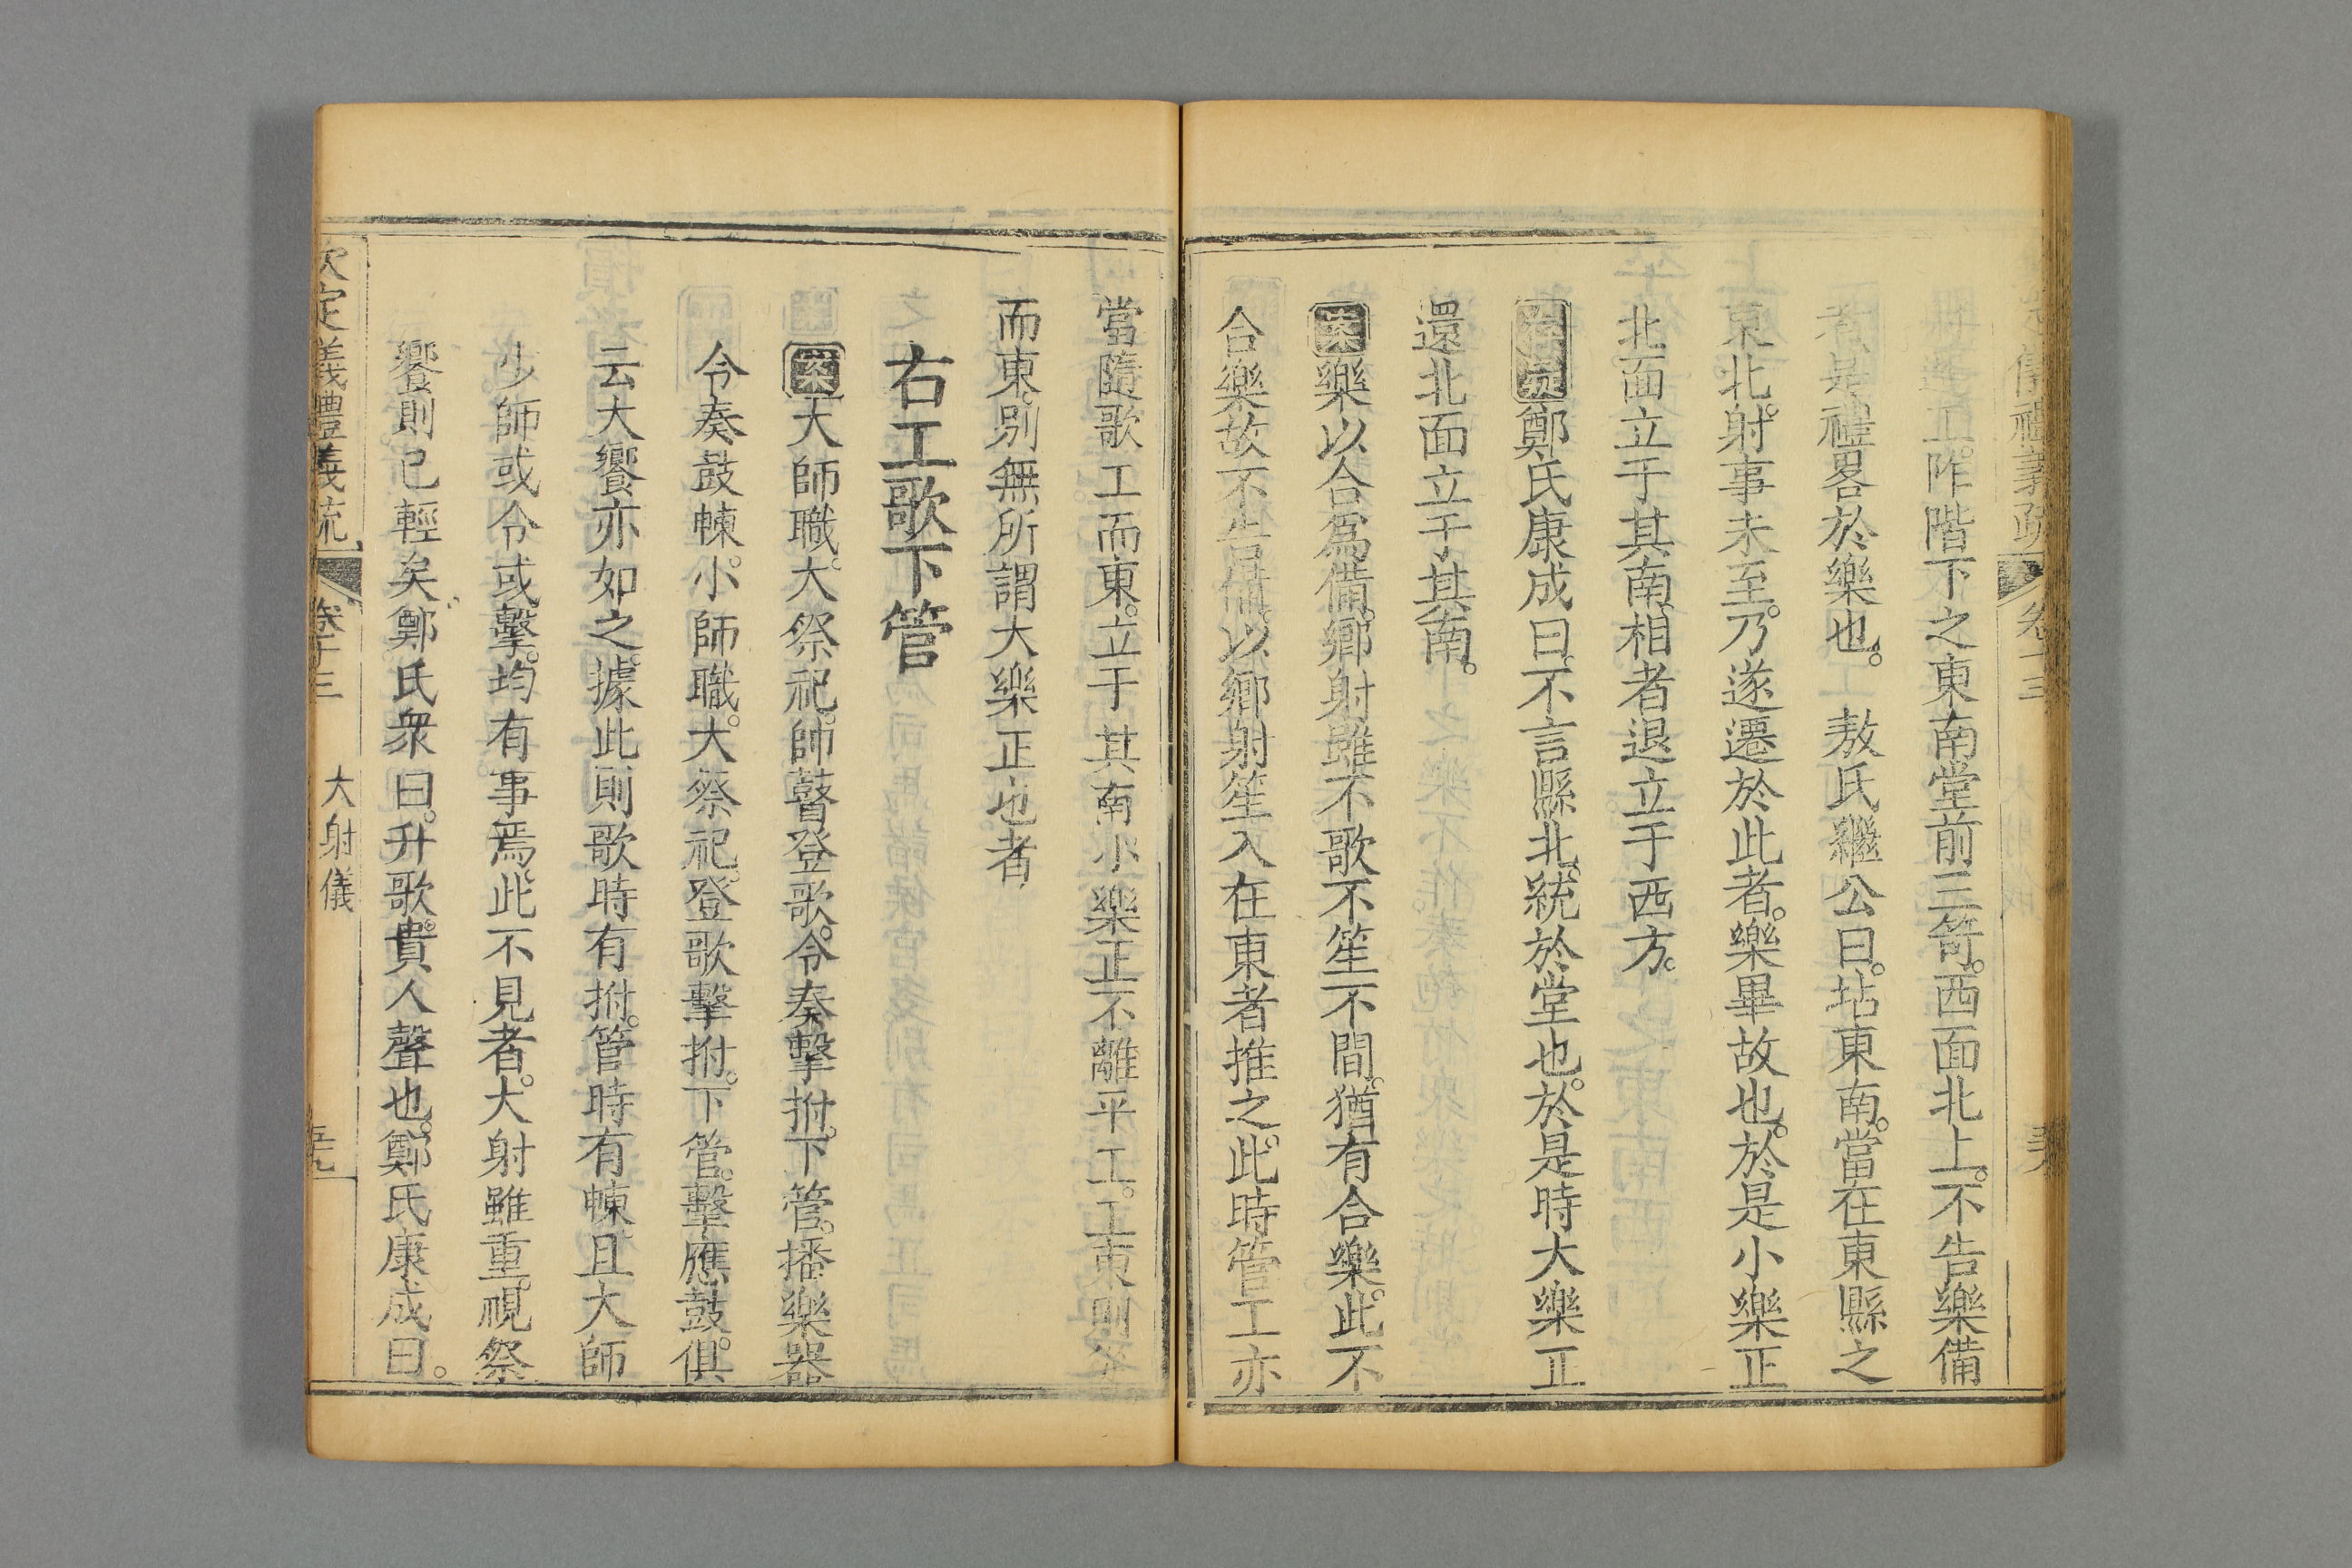 儀禮義疏 卷十三
遷工。阼階下之東南堂前三笴。西面北上。不告樂備
者。是禮畧於樂也。 敖氏繼公曰。坫東南。當在東縣之
東北。射事未至。乃遂遷於此者。樂畢故也。於是小樂正
北面立于其南。相者退立于西方。
鄭氏康成曰。不言縣北。統於堂也。於是時大樂正
還北面立于其南。
案樂以合爲備。鄉射雖不歌不笙不間。猶有合樂。此不
合樂故不告備。以鄉射笙入在東者推之。此時管工亦
當隨歌工而東。立于其南。小樂正不離乎工。工東則
而東。別無所謂大樂正也者
右工歌下管
案大師職。大祭祀。師瞽登歌。令奏擊拊。下管。播樂器
令奏鼓朄。小師職。大祭祀。登歌擊拊。下管。擊應鼓。俱
云大饗亦如之。據此則歌時有拊。管時有朄。且大師
少師或令或擊。均有事焉。此不見者。大射雖重。視祭
饗則已輕矣。鄭氏衆曰。升歌。貴人聲也。鄭氏康成曰。
欽定義禮義疏 卷十三 大射儀